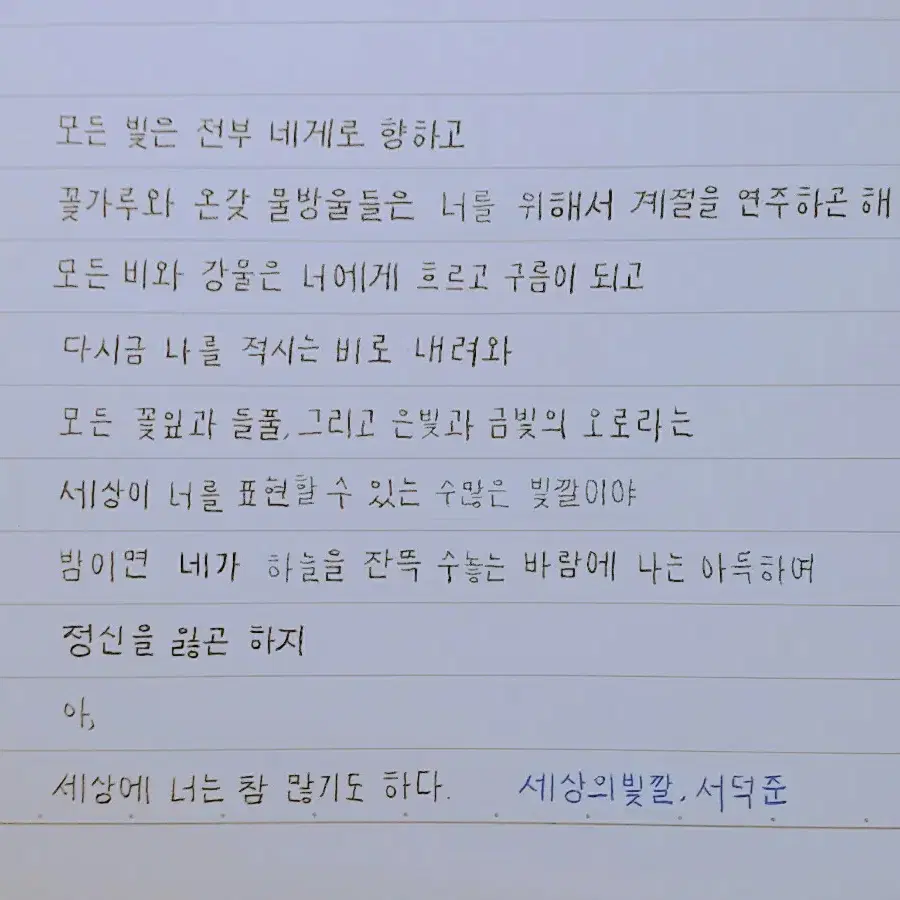 모든 빛은 전부 네게로 향하고
꽃가루와 온갖 물방울들은 너를 위해서 계절을 연주하곤 해
모든 비와 강물은 너에게 흐르고 구름이 되고
다시금 나를 적시는 비로 내려와
모든 꽃잎과 들풀, 그리고 은빛과 금빛의 오로라는
세상이 너를 표현할 수 있는 수많은 빛깔이야
밤이면 네가 하늘을 잔뜩 수놓는 바람에 나는 아득하여
정신을 잃곤 하지
아,
세상에 너는 참 많기도 하다. 세상의빛깔, 서덕준